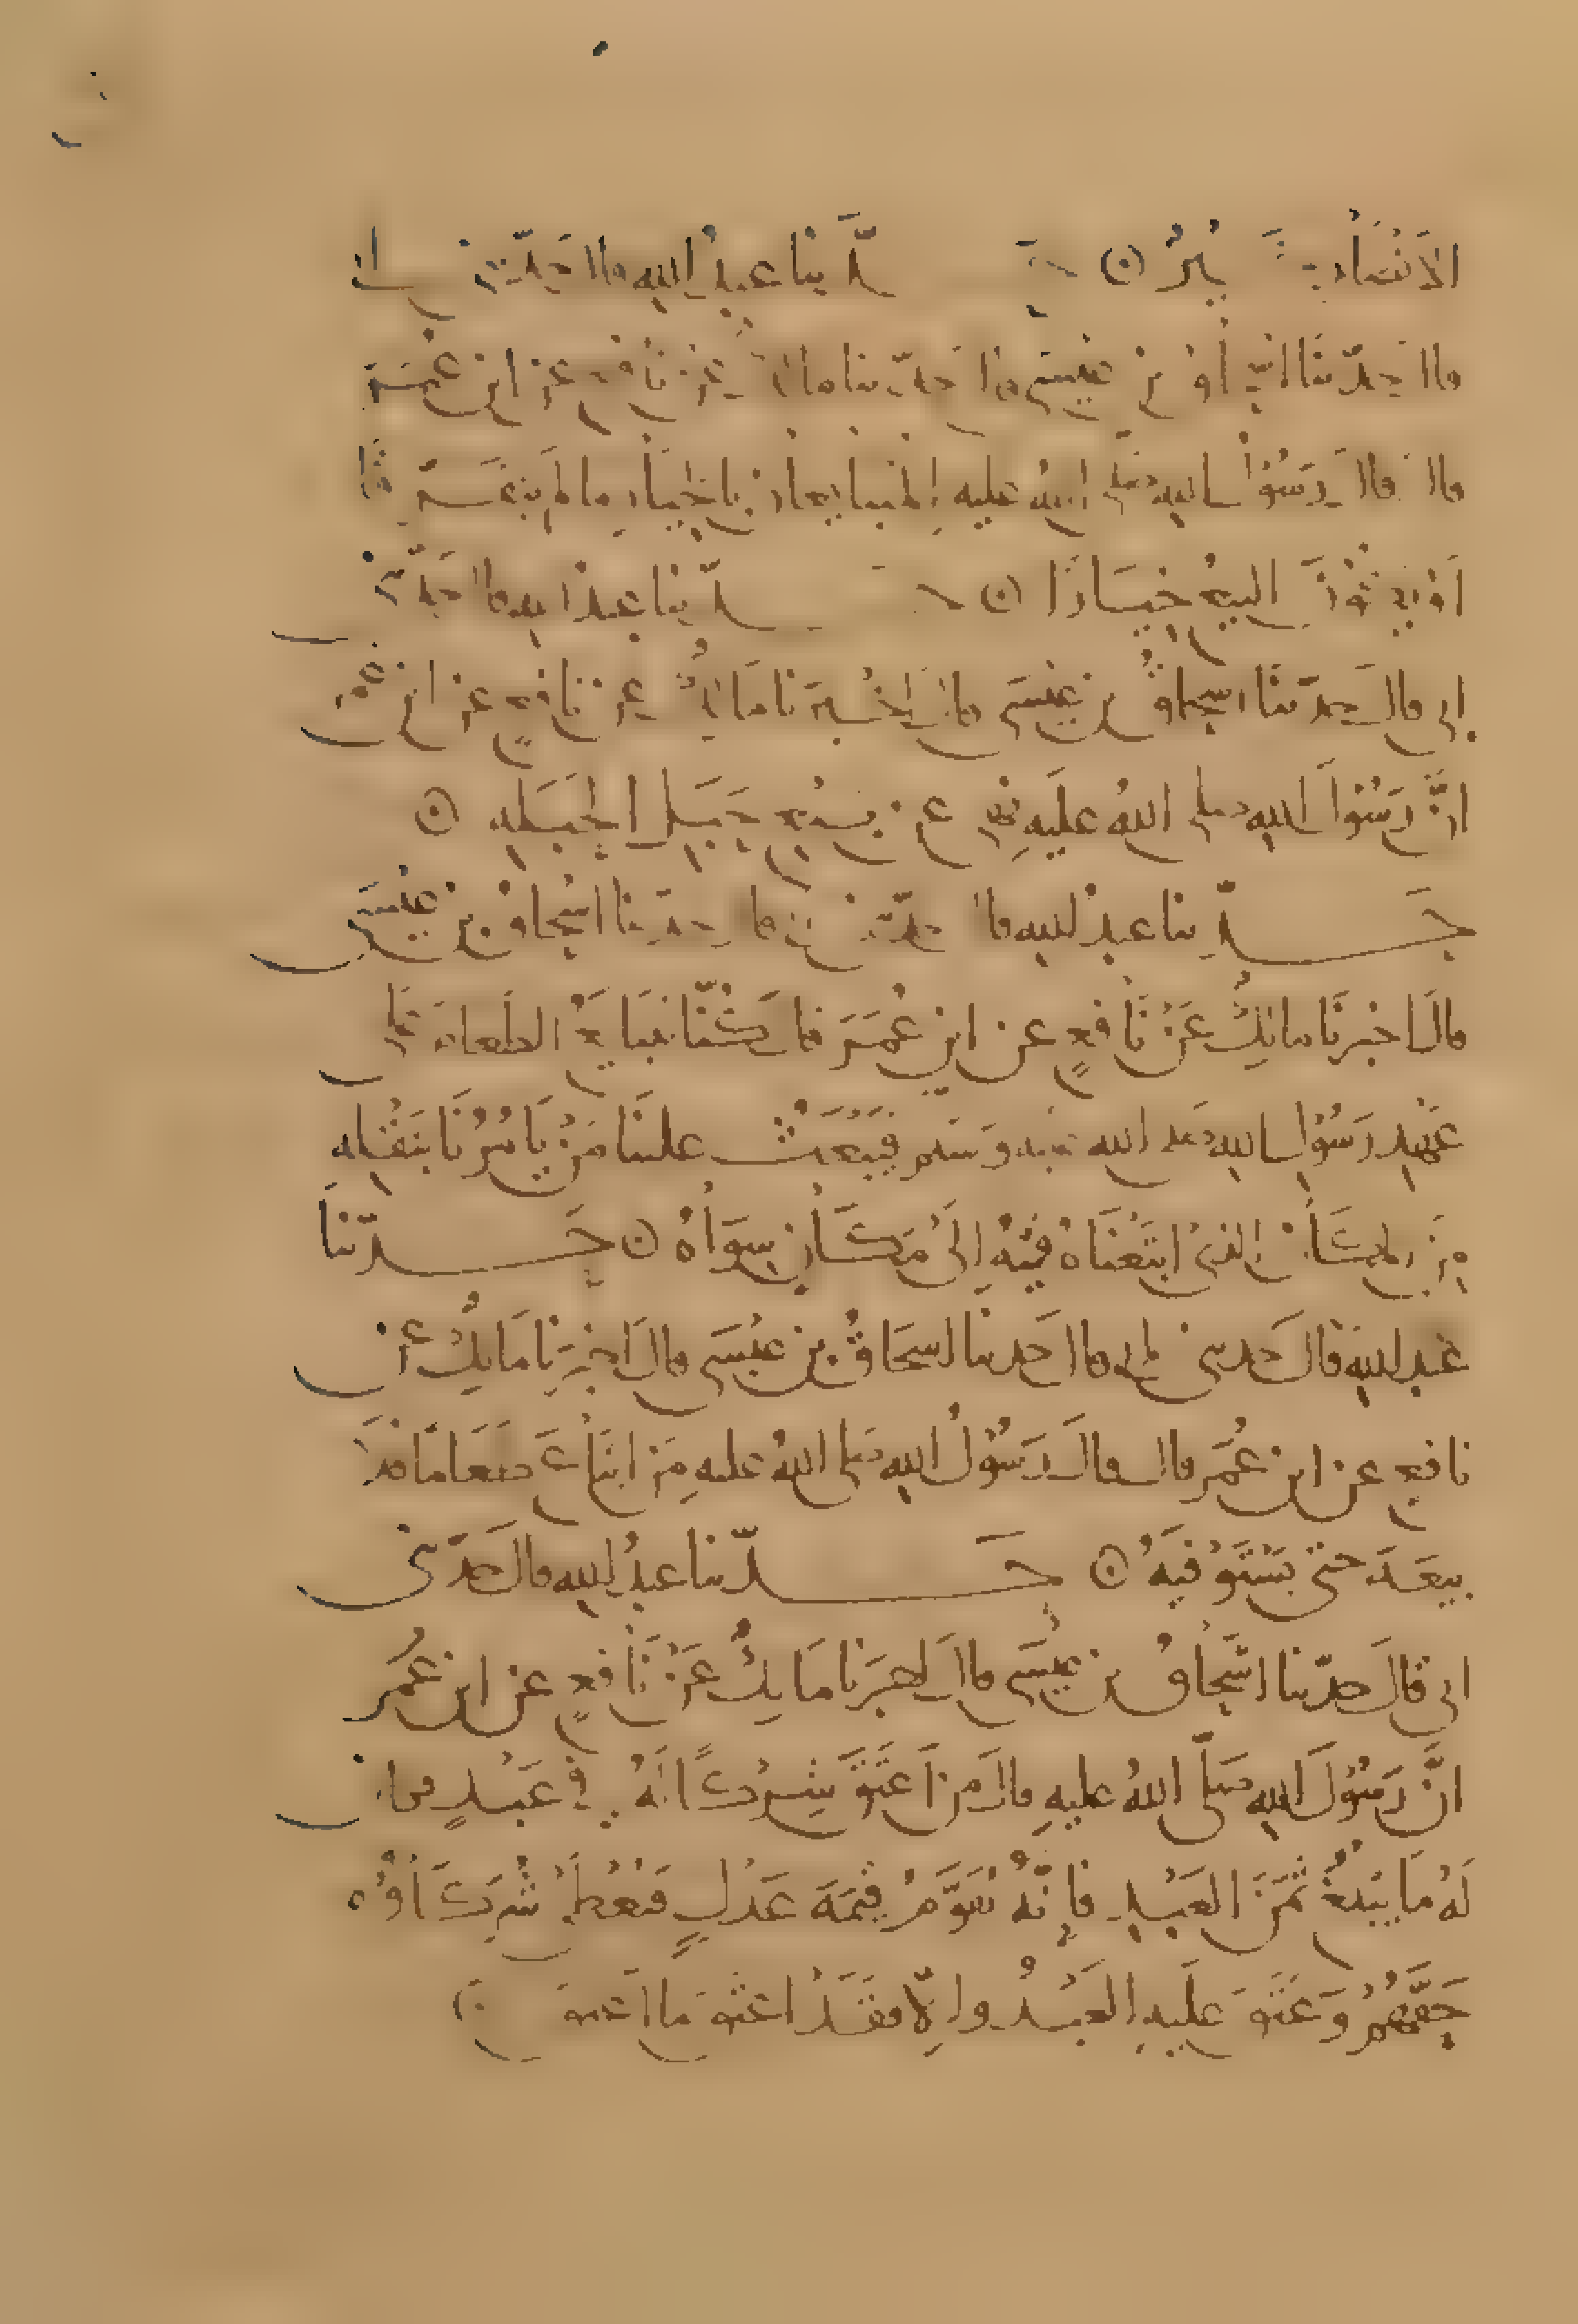 الأنصار يُبرُ ۞ حدّثنا عبدُ الله قال حَدّثني أبي
قال حدّثنا إسحاق بن عيسى قال حدّثنا مالك عن نافع عن ابن عُمَر
قال قال رَسُول الله صلى اللهُ عليه المتبايعان بالخيار ما لم يتفرّقا
أو يكون البيع خيارًا ۞ حدّثنا عبد الله قال حَدّثني
أبي قال حدّثنا اسحاقُ بن عيسَى قال أخبرَنا مالكُ عن نافعٍ عن ابن عمر
انَّ رَسُولَ الله صلى اللهُ عليهِ نهى عن بيع حَبَلِ الحَبَلهِ ۞
حَدّثنا عبدُ الله قال حدّثني أبي قال حدّثنا اسْحاق بن عيسَى
قالَ اخبرنَا مالكُ عَنْ نَافعٍ عن ابنِ عُمَرَ قال كُنّا نتبايَعُ الطعامَ على
عَهْدِ رَسُولِ الله صلى الله عليه وَسَلم فيَبْعَثُ علينَا مَنْ يَامُرُنَا بنَقْلِهِ
مِنَ المكَانِ الذي ابتَعْنَاهُ فيْهِ اِلَى مَكَانٍ سِوَاهُ ۞ حَدّثنا
عبد الله قال حَدثني أبي قال حَدثنا اسحَاقُ بن عيسَى قال اخبرَنا مَالكُ عن
نافعٍ عن ابن عُمَر قال قالَ رَسُولُ الله صلى اللهُ عليهِ مَن ابتَاعَ طَعَامًا فلاَ
يبيعَهُ حتى يَسْتَوْفيَهُ ۞ حَدّثنا عبدُ الله قالَ حَدّثني
ابي قالَ حدّثنا اسْحَاقُ بن عيسَى قالَ اخبرَنا مَالكُ عَنْ نَافعٍ عن ابن عُمَر
انَّ رَسُولَ الله صَلّى اللهُ عليهِ قالَ مَن اَعتَقَ شِرْكًا لَهُ في عَبْدٍ فكان
لَهُ مَا يَبْلُغُ ثمَنَ العَبْدِ فإنّهُ يُقَوَّمُ قيمَةَ عَدْلٍ فيُعْطَى شُرَكَاؤُهُ
حَقَّهُمْ وَعَتَقَ عَلَيهِ العَبْدُ وإلّا فقَدْ اعتَقَ مَا اَعتق ۞